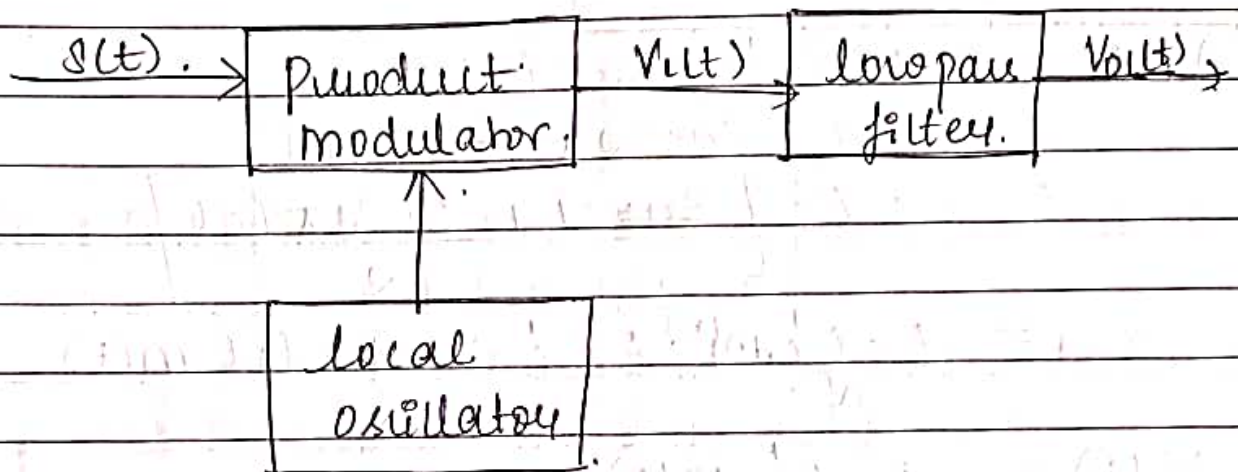 S(t).
Product
modulator.
V₁(t)
lowpass
filter.
V₀₁(t)
local
oscillator.